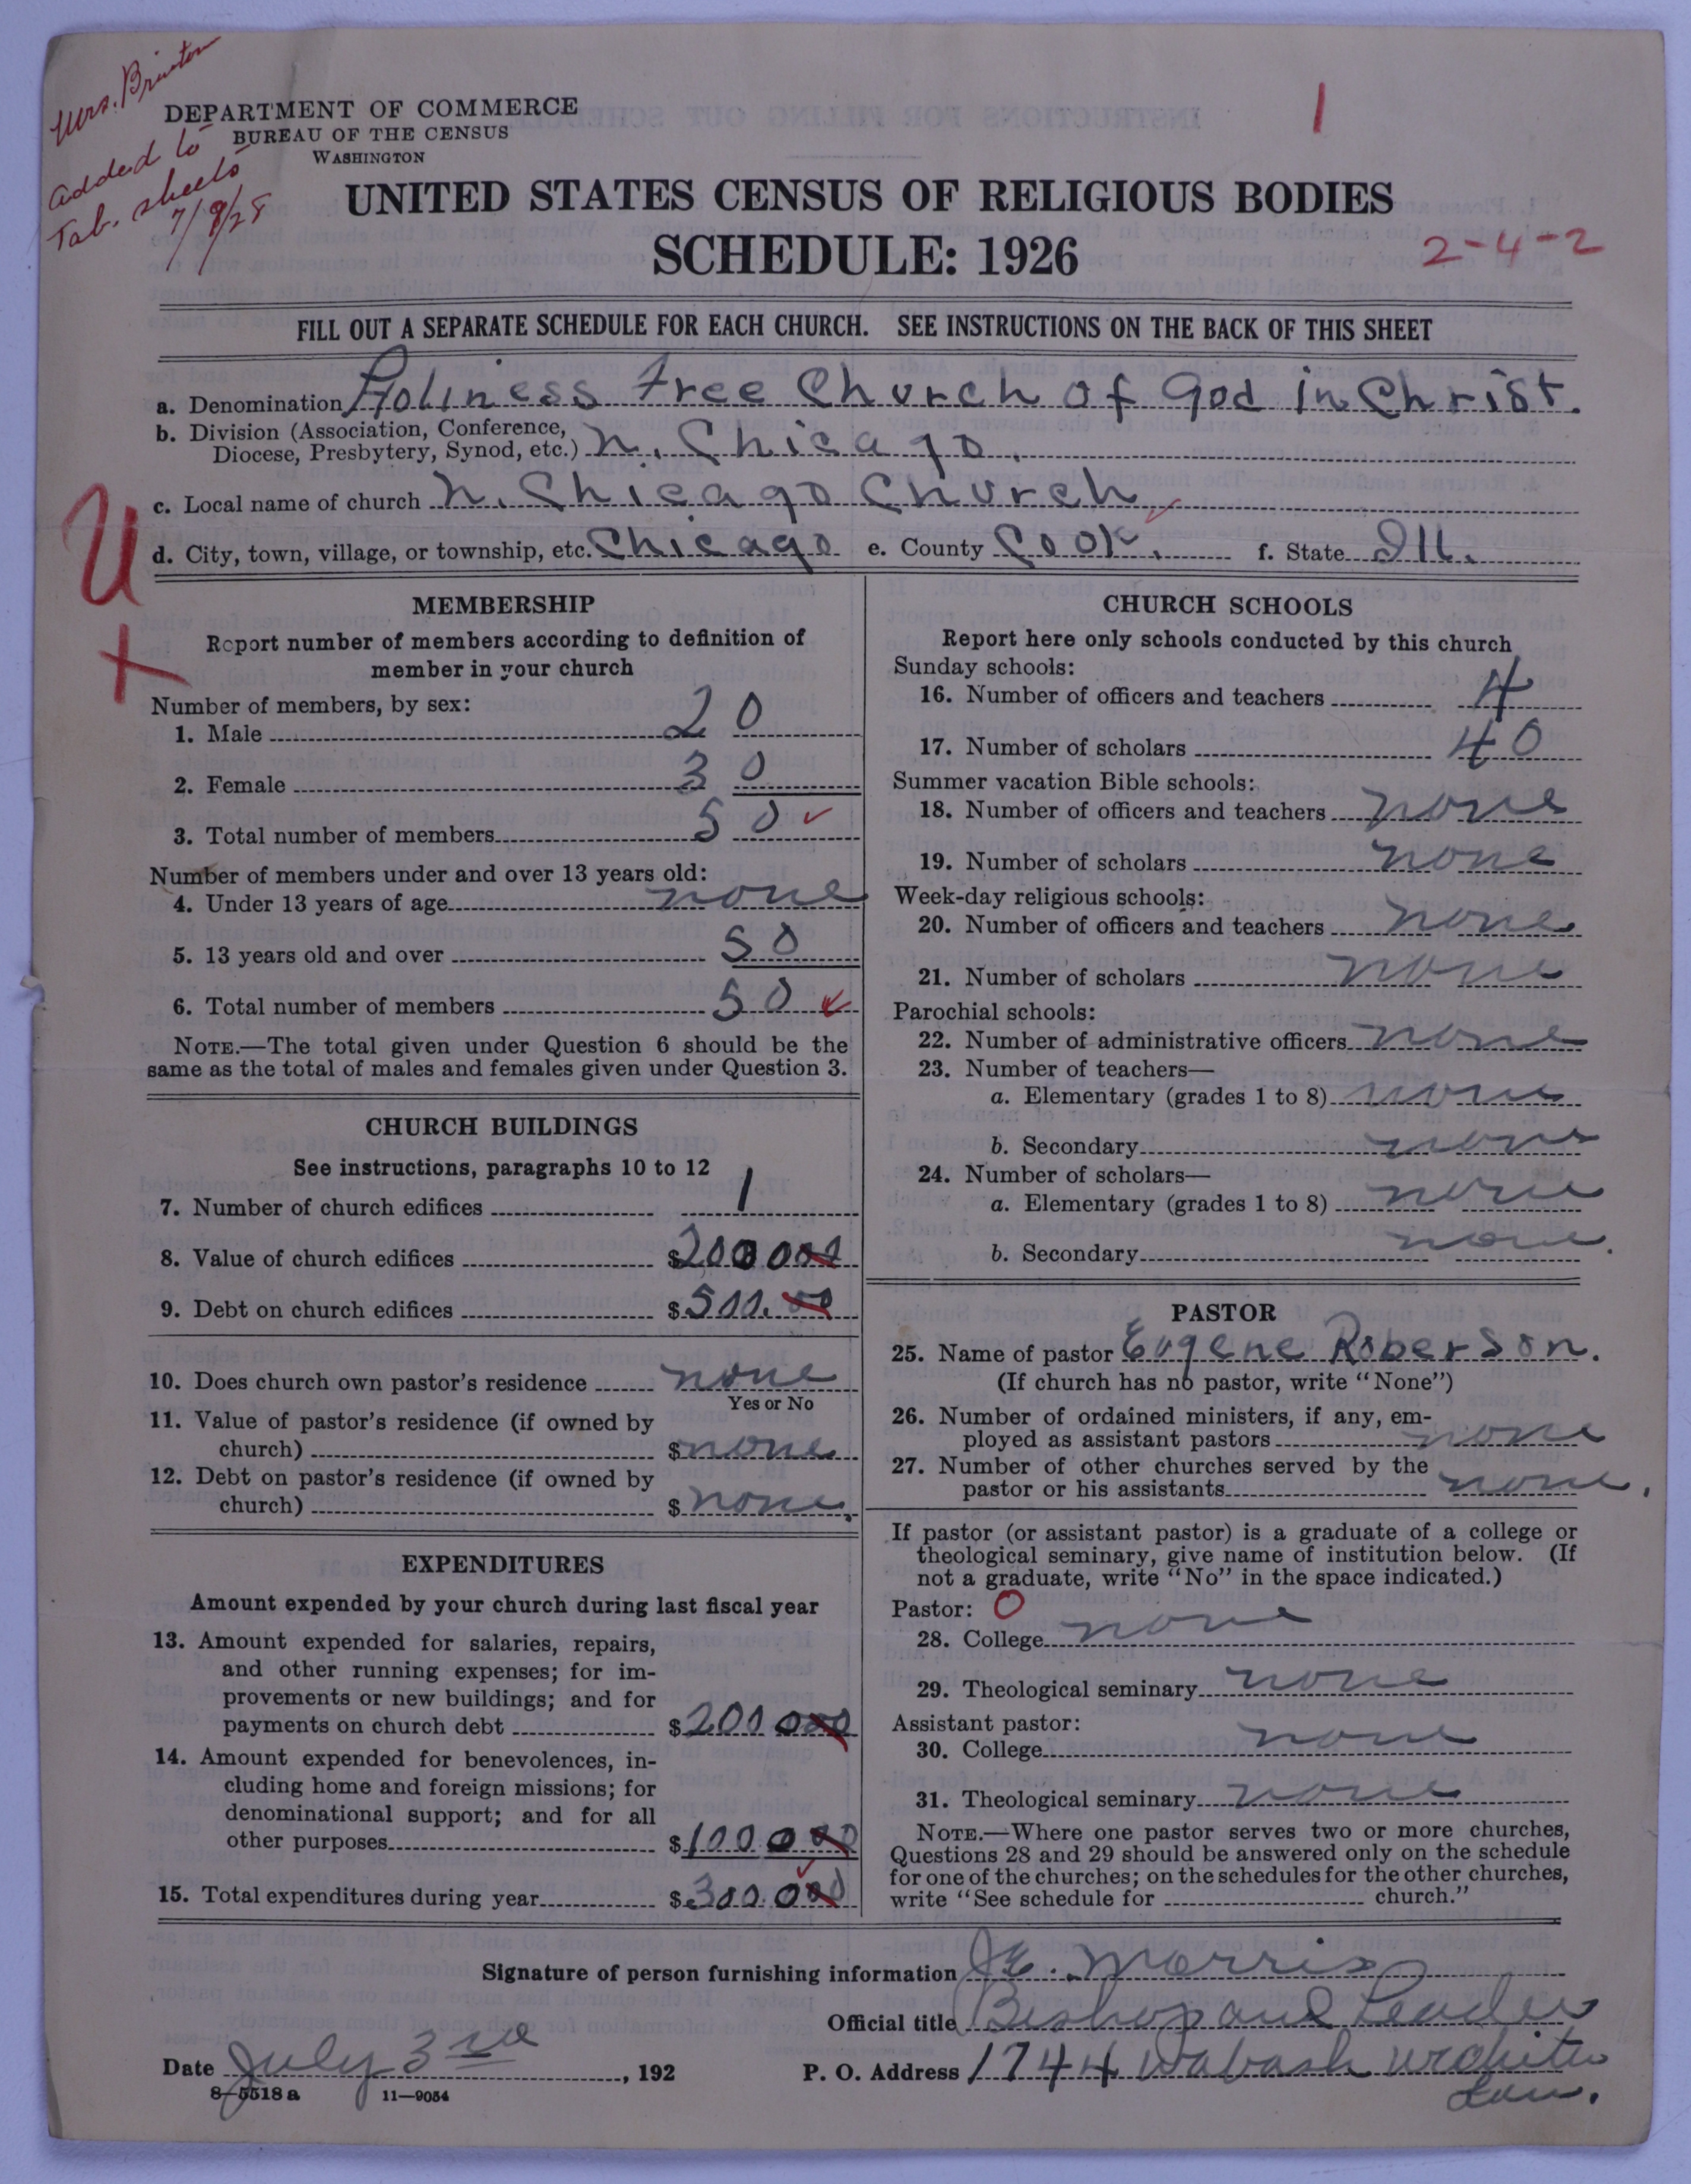 Mrs. Brinton
added to
Tab. sheets
7/9/28
DEPARTMENT OF COMMERCE
BUREAU OF THE CENSUS
WASHINGTON
1
UNITED STATES CENSUS OF RELIGIOUS BODIES
SCHEDULE: 1926
2-4-2
FILL OUT A SEPARATE SCHEDULE FOR EACH CHURCH. SEE INSTRUCTIONS ON THE BACK OF THIS SHEET
a. Denomination Holiness Free Church of God in Christ.
b. Division (Association, Conference,
Diocese, Presbytery, Synod, etc.) N. Chicago.
c. Local name of church N. Chicago Church
d. City, town, village, or township, etc. Chicago e. County Cook. f. State Ill.
U
+
MEMBERSHIP
Report number of members according to definition of
member in your church
Number of members, by sex:
1. Male 20
2. Female 30
3. Total number of members 50
Number of members under and over 13 years old:
4. Under 13 years of age none
5. 13 years old and over 50
6. Total number of members 50
NOTE.—The total given under Question 6 should be the
same as the total of males and females given under Question 3.
CHURCH BUILDINGS
See instructions, paragraphs 10 to 12
7. Number of church edifices 1
8. Value of church edifices $ 200000
9. Debt on church edifices $ 500.00
10. Does church own pastor's residence none
Yes or No
11. Value of pastor's residence (if owned by
church) $ none
12. Debt on pastor's residence (if owned by
church) $ none.
EXPENDITURES
Amount expended by your church during last fiscal year
13. Amount expended for salaries, repairs,
and other running expenses; for im-
provements or new buildings; and for
payments on church debt $ 200 000
14. Amount expended for benevolences, in-
cluding home and foreign missions; for
denominational support; and for all
other purposes $ 100 000
15. Total expenditures during year $ 300.000
CHURCH SCHOOLS
Report here only schools conducted by this church
Sunday schools:
16. Number of officers and teachers 4
17. Number of scholars 40
Summer vacation Bible schools:
18. Number of officers and teachers none
19. Number of scholars none
Week-day religious schools:
20. Number of officers and teachers none
21. Number of scholars none
Parochial schools:
22. Number of administrative officers none
23. Number of teachers—
a. Elementary (grades 1 to 8) none
b. Secondary none
24. Number of scholars—
a. Elementary (grades 1 to 8) none
b. Secondary none.
PASTOR
25. Name of pastor Eugene Roberson.
(If church has no pastor, write "None")
26. Number of ordained ministers, if any, em-
ployed as assistant pastors none
27. Number of other churches served by the
pastor or his assistants none.
If pastor (or assistant pastor) is a graduate of a college or
theological seminary, give name of institution below. (If
not a graduate, write "No" in the space indicated.)
Pastor: O
28. College none
29. Theological seminary none
Assistant pastor:
30. College none
31. Theological seminary none
NOTE.—Where one pastor serves two or more churches,
Questions 28 and 29 should be answered only on the schedule
for one of the churches; on the schedules for the other churches,
write "See schedule for church."
Signature of person furnishing information J E. Morris
Official title Bishop and Leader
Date July 3rd, 192 P. O. Address 1744 Wabash Wichita
Kan.
8-5518a 11-9054